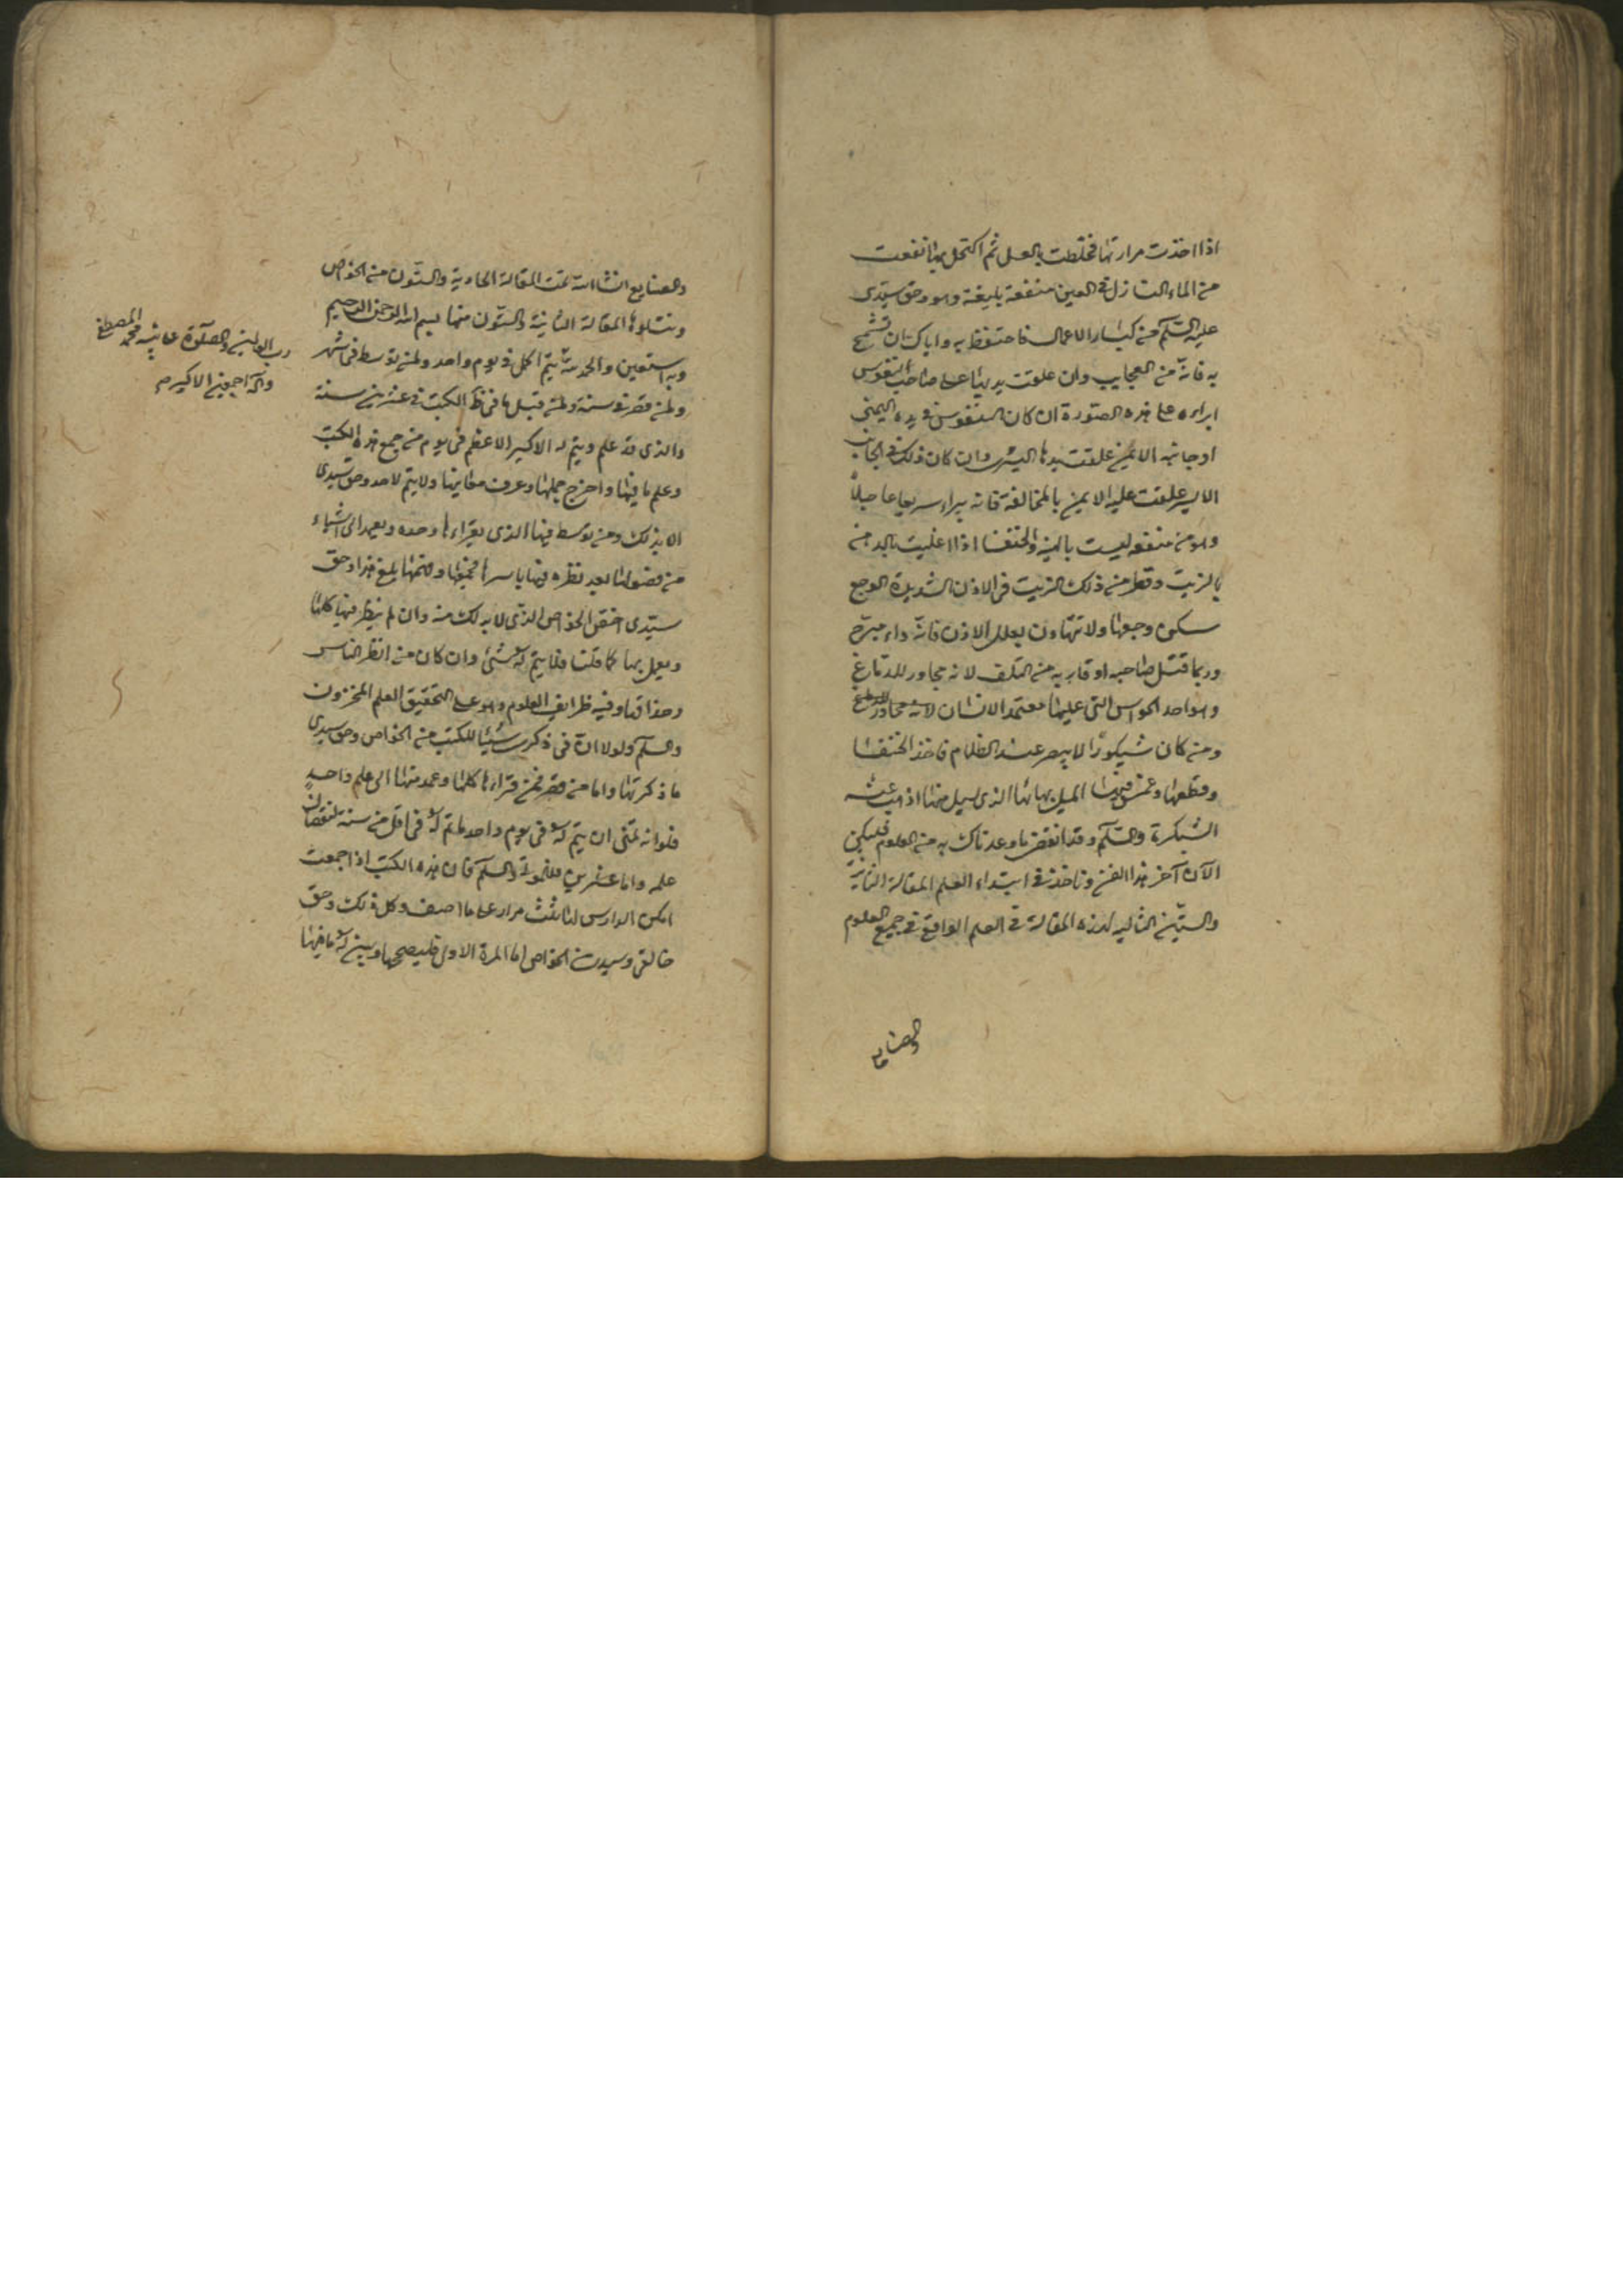 اذا اخذت مرارتها فخلطت بالعسل ثم اكتحل بها نفعت
من الماء النازل في العين منفعة بليغة وهو وحق سيدى
عليه السلم من كبار الاعمال فاحتفظ به واياك ان تسمح
به فانه من العجايب وان علقت يديها على صاحب النقرس
ابراه على هذه الصورة ان كان النقرس في يده اليمنى
او جانبه الايمن علقت يدها اليسرى وان كان ذلك في الجانب
الايسر علقت عليه الايمن بالمخالفة فانه يبراء سريعا عاجلا
وهو من منفعه ليست بالهينه والخنفسا اذا اغليت
بالزيت وقطر من ذلك الزيت في الاذن الشديدة الوجع
سكن وجعها ولا تتهاون بعلل الاذن فانه داء مبرح
وربما قتل صاحبه او قاربه من التلف لانه مجاور للدماغ
وهو احد الحواس التى عليها معتمد الانسان لانه مجاور للدماغ
ومن كان شبكورا لا يبصر عند الظلام فاخذ الخنفسا
وقطعها وغمس فيها الميل بمائها الذى يسيل منها اذهب عنه
الشبكرة والسلم وقد انقضى ما وعدناك به من العلوم فليكن
الآن آخر هذا الفن وناخذ في ابتداء العلم المقالة الثانية
والستين التاليه لهذه المقالة في العلم الواقع في جميع العلوم
والصنايع
والصنايع انشاالله تمت المقالة الحادية والستون من الخواص
وتتلوها المقالة الثانية والستون منها بسم الله الرحمن الرحيم
وبه استعين والحمد لله يتم الكل في يوم واحد ولمن توسط في شهر
ولمن قصر في سنة ولمن قبل ما في الكتب في عشرين سنة
والذى قد علم ويتم له الاكسير الاعظم في يوم من جمع هذه الكتب
وعلم ما فيها واخرج جملها وعرف معانيها ولا يتم لاحد وحق سيدى
الا بذلك ومن توسط فيها الذى يقراءها وحده ويعمد الى اشياء
من فصولها بعد نظره فيها باسرها فجمعها وضمها بلغ هذا وحق
سيدى اخص الخواص الذى لا بد لك منه وان لم ينظر فيها كلها
ويعمل بها كما قلنا فما يتم له شئ وان كان من انظر الناس
وحذاقها وفيه ظرايف العلوم وهو على التحقيق العلم المخزون
والسلم ولولا ان في ذكره شيئا للكتب من الخواص وحق سيدى
ما ذكرتها واما من قصر فمن قراءها كلها وعمد منها الى علم واحد
فلو انه تمنى ان يتم له في يوم واحد ما تم له في اقل من سنة لنقصان
علمه واما عشرين والسلم فان هذه الكتب اذا جمعت
امكن الدارس لها ثلث مرار على ما اصف وكل ذلك وحق
خالقى وسيدى من الخواص اما المرة الاولى فليصححها ويبين له ما فيها
رب العالمين والصلوة على نبيه محمد المصطفى
وآله اجمعين الاكرم